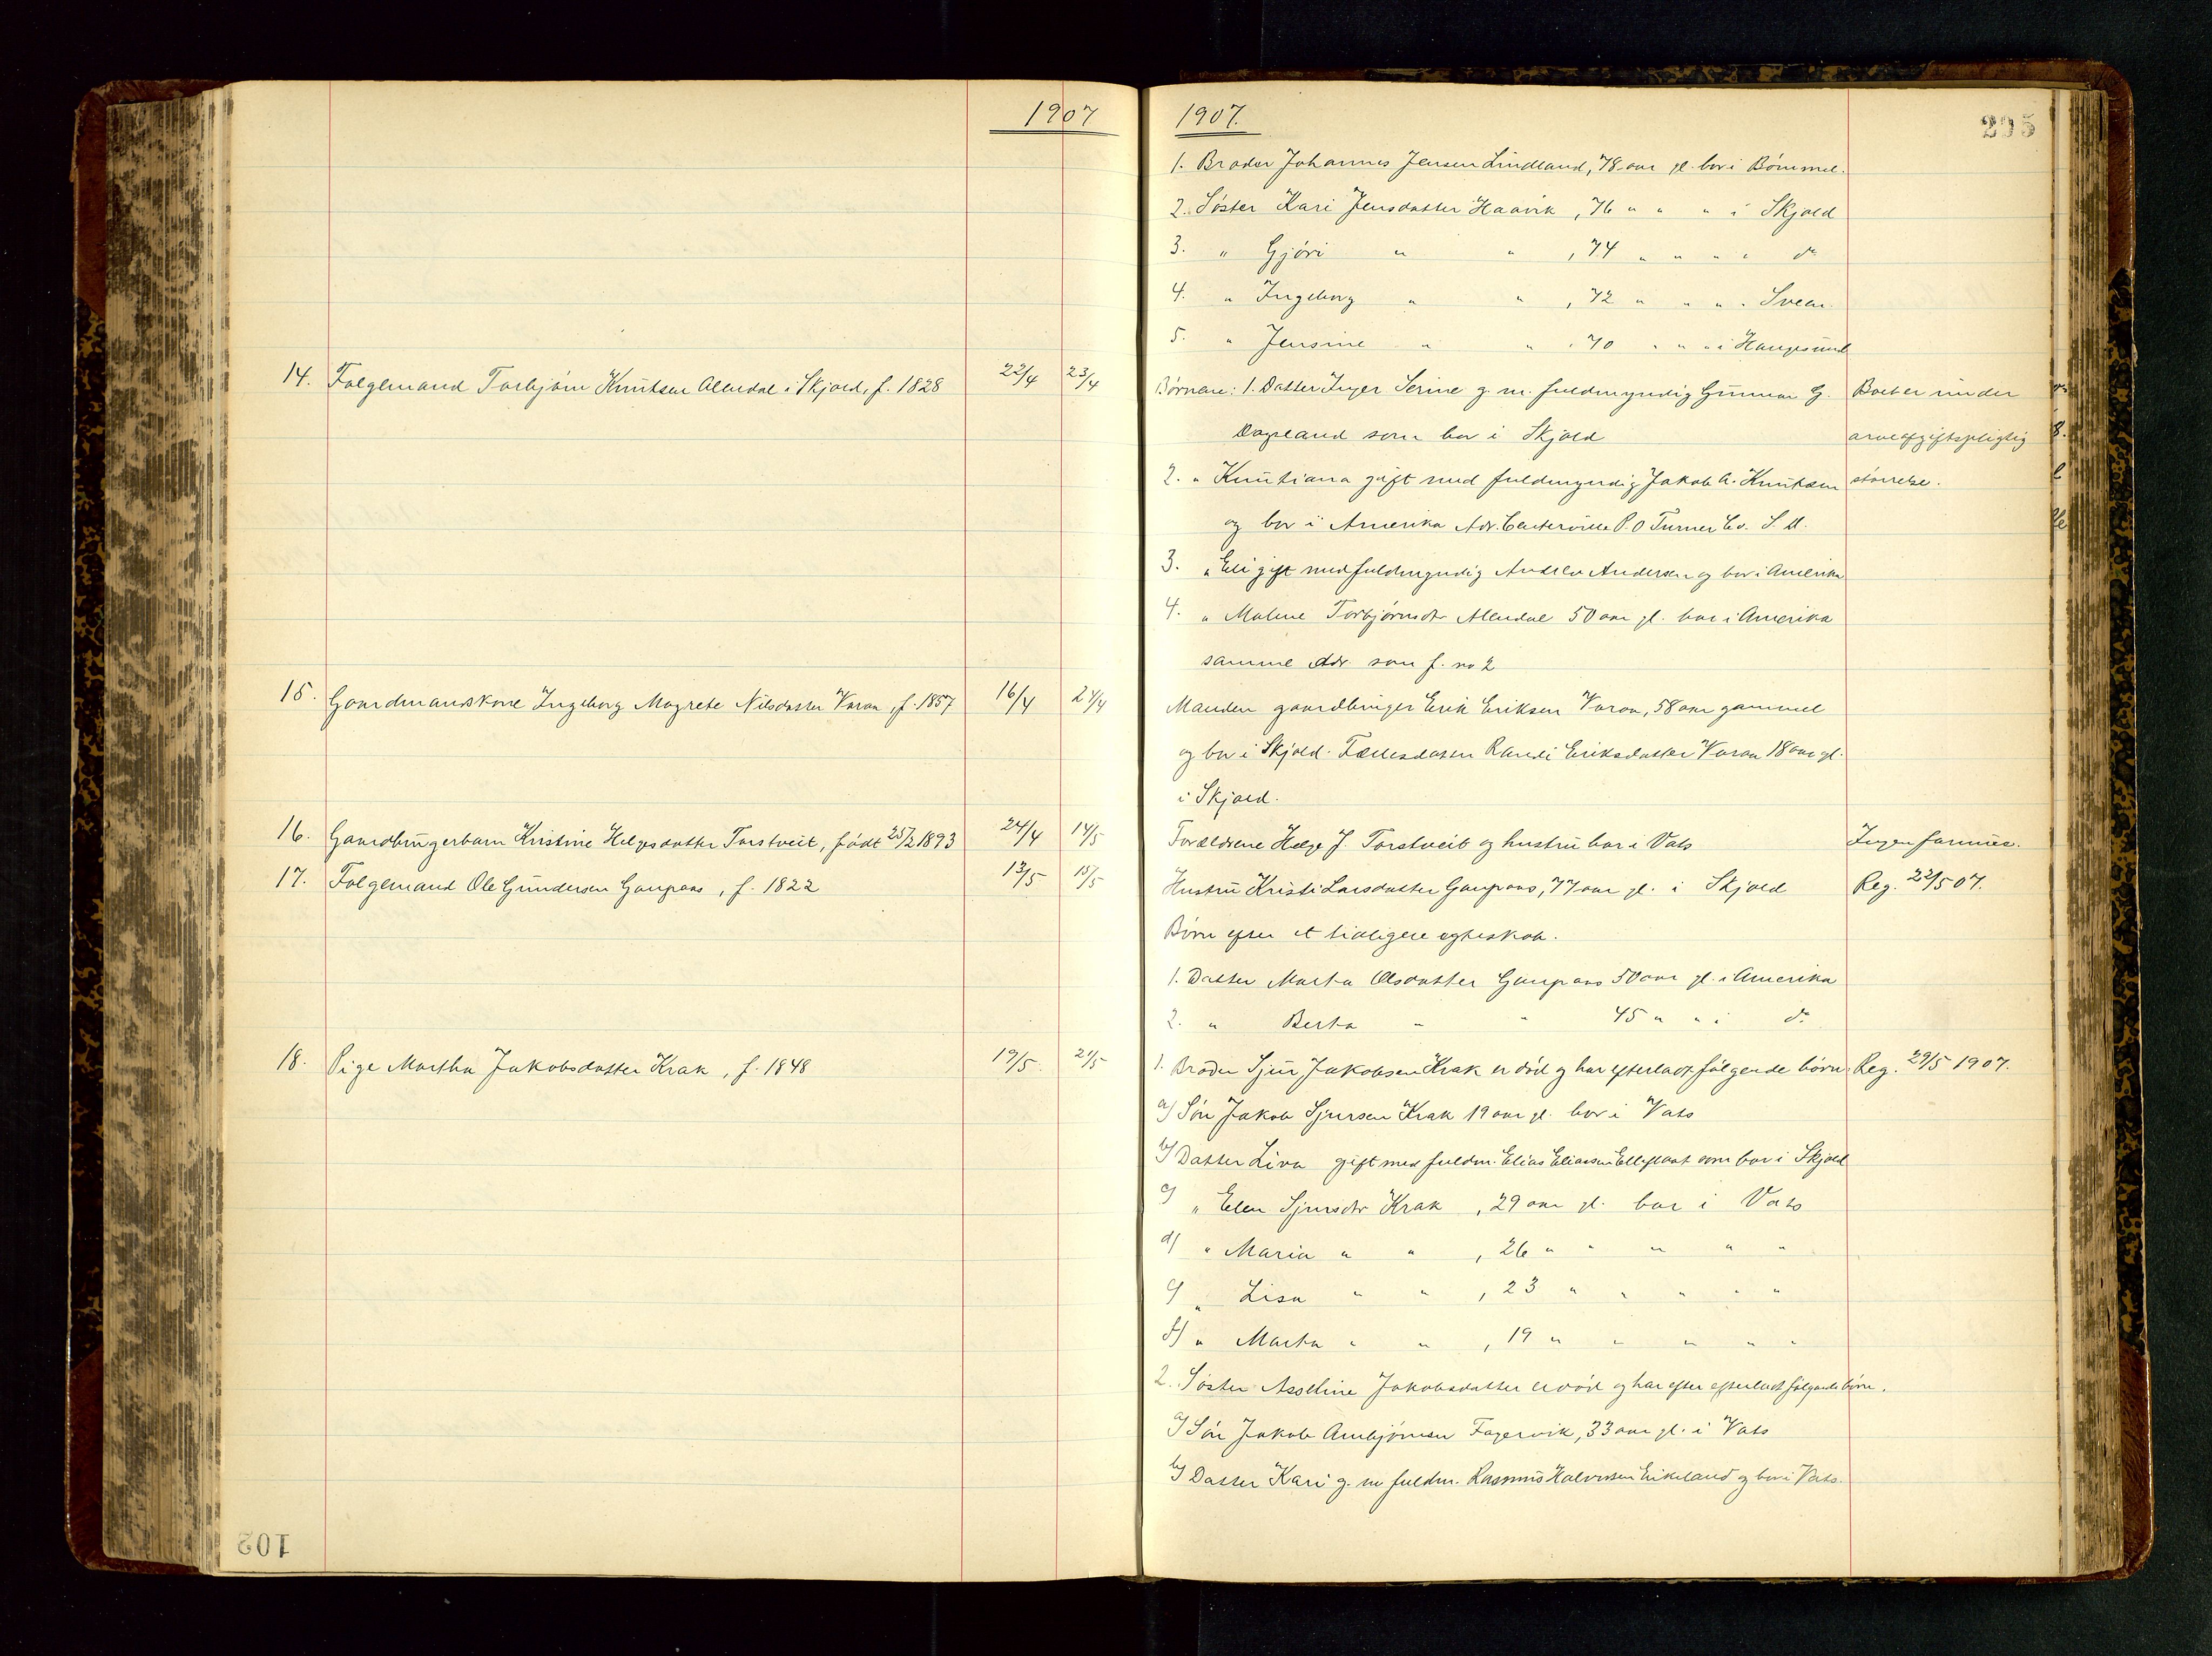 1907
14. Folgemand Torbjørn Knutsen Alendal i Skjold, f. 1828 22/4 23/4
15. Gaardmandskone Ingeborg Magrete Nilsdatter Vaaa, f. 1857 16/4 24/4
16. Gaardbrugerbarn Kristine Helgesdatter Torstveit, født 25/2 1893 24/4 14/5
17. Folgemand Ole Gundersen Gaupaas, f. 1822 13/5 15/5
18. Pige Martha Jakobsdatter Krak, f. 1848 19/5. 21/5
102
1907. 295
1. Broder Johannes Jensen Lindland, 78 aar gl. bor i Bømmel.
2. Søster Kari Jensdatter Haavik, 76 " " " i Skjold
3. " Gjøri " " , 74 " " " " do
4. " Ingeborg " " , 72 " " " " Sveen
5. " Jensine " " , 70 " " " i Haugesund
Børnene: 1. Datter Inger Serine g. m. fuldmyndig Gunnar G. Boet er under
Dagsland som bor i Skjold arveafgiftspligtig
2. " Knutiana gift med fuldmyndig Jakob A. Knutsen størrelse.
og bor i Amerika Adr. Centerville P.O Turner Co. S. D.
3. " Eli gift med fuldmyndig Andreas Andersen og bor i Amerika
4. " Malene Torbjørnsdtr Alendal 50 aar gl. bor i Amerika
samme Adr. som f. no 2
Manden gaardbruger Erik Eriksen Varaa, 58 aar gammel
og bor i Skjold. Fællesdatter Randi Eriksdatter Varaa 18 aar gl.
i Skjold.
Forældrene Helge J. Torstveit og hustru bor i Vats Ingen formue.
Hustru Kristi Larsdatter Gaupaas, 77 aar gl. i Skjold Reg. 22/5 07.
Børn efter et tidligere egteskab.
1. Datter Marta Olsdatter Gaupaas 50 aar gl. i Amerika
2. " Berta " " 45 " " i do
1. Broder Sjur Jakobsen Krak er død og har efterladt følgende børn: Reg. 29/5 1907.
a) Søn Jakob Sjursen Krak 19 aar gl. bor i Vats
b) Datter Liva gift med fuldm. Elias Eliassen som bor i Skjold
c) " Elen Sjursdtr Krak, 29 aar gl. bor i Vats
d) " Maria " " , 26 " " " " "
e) " Lisa " " , 23 " " " " "
f) " Marta " " , 19 " " " " "
2. Søster Asseline Jakobsdatter er død og har efter efterladt følgende børn.
a) Søn Jakob Arnbjørnsen Fagervik, 33 aar gl. i Vats
b) Datter Kari g. m fuldm. Rasmus Halvorsen Eikeland og bor i Vats.